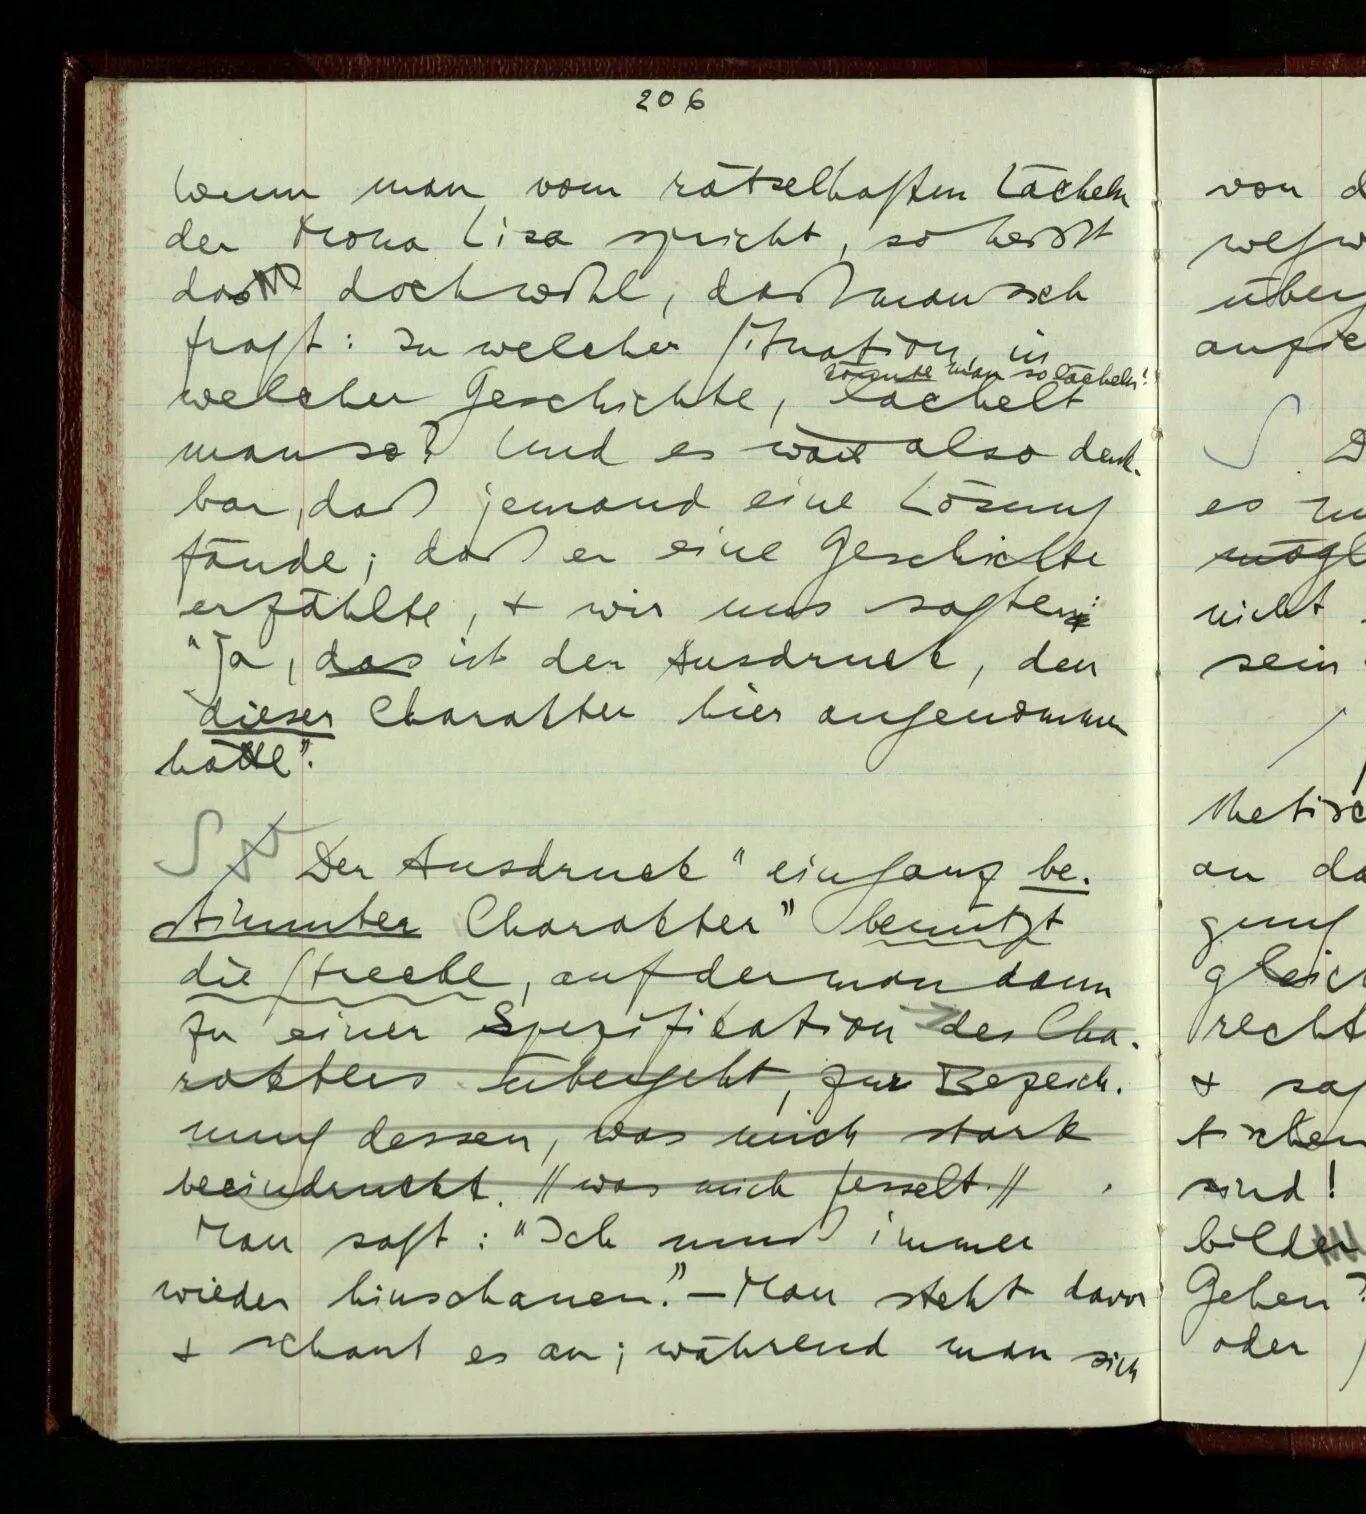 206
Wenn man vom rätselhaften Lächeln
der Mona Lisa spricht, so heißt
das doch wohl, daß man sich
fragt: In welcher Situation, in
könnte man so lächeln?
welcher Geschichte, lächelt
man so? Und es wäre also denk-
bar, daß jemand eine Lösung
fände; daß er eine Geschichte
erzählte, + wir uns sagten:
"Ja, das ist der Ausdruck, den
dieser Charakter hier angenommen
hätte".
S Der Ausdruck "ein ganz be-
stimmter Charakter" benützt
die Strecke, auf der man dann
zu einer Spezifikation des Cha-
rakters übergeht, zur Bezeich-
nung dessen, was mich stark
beeindruckt. // was mich fesselt. //
Man sagt: "Ich muß immer
wieder hinschauen." – Man steht davor
+ schaut es an; während man sich
von d
überg
S D
es
mögl
nicht
sein
thetisc
an da
gung
gleich
recht
+ sag
tischen
sind!
bilder
Gehen?
oder